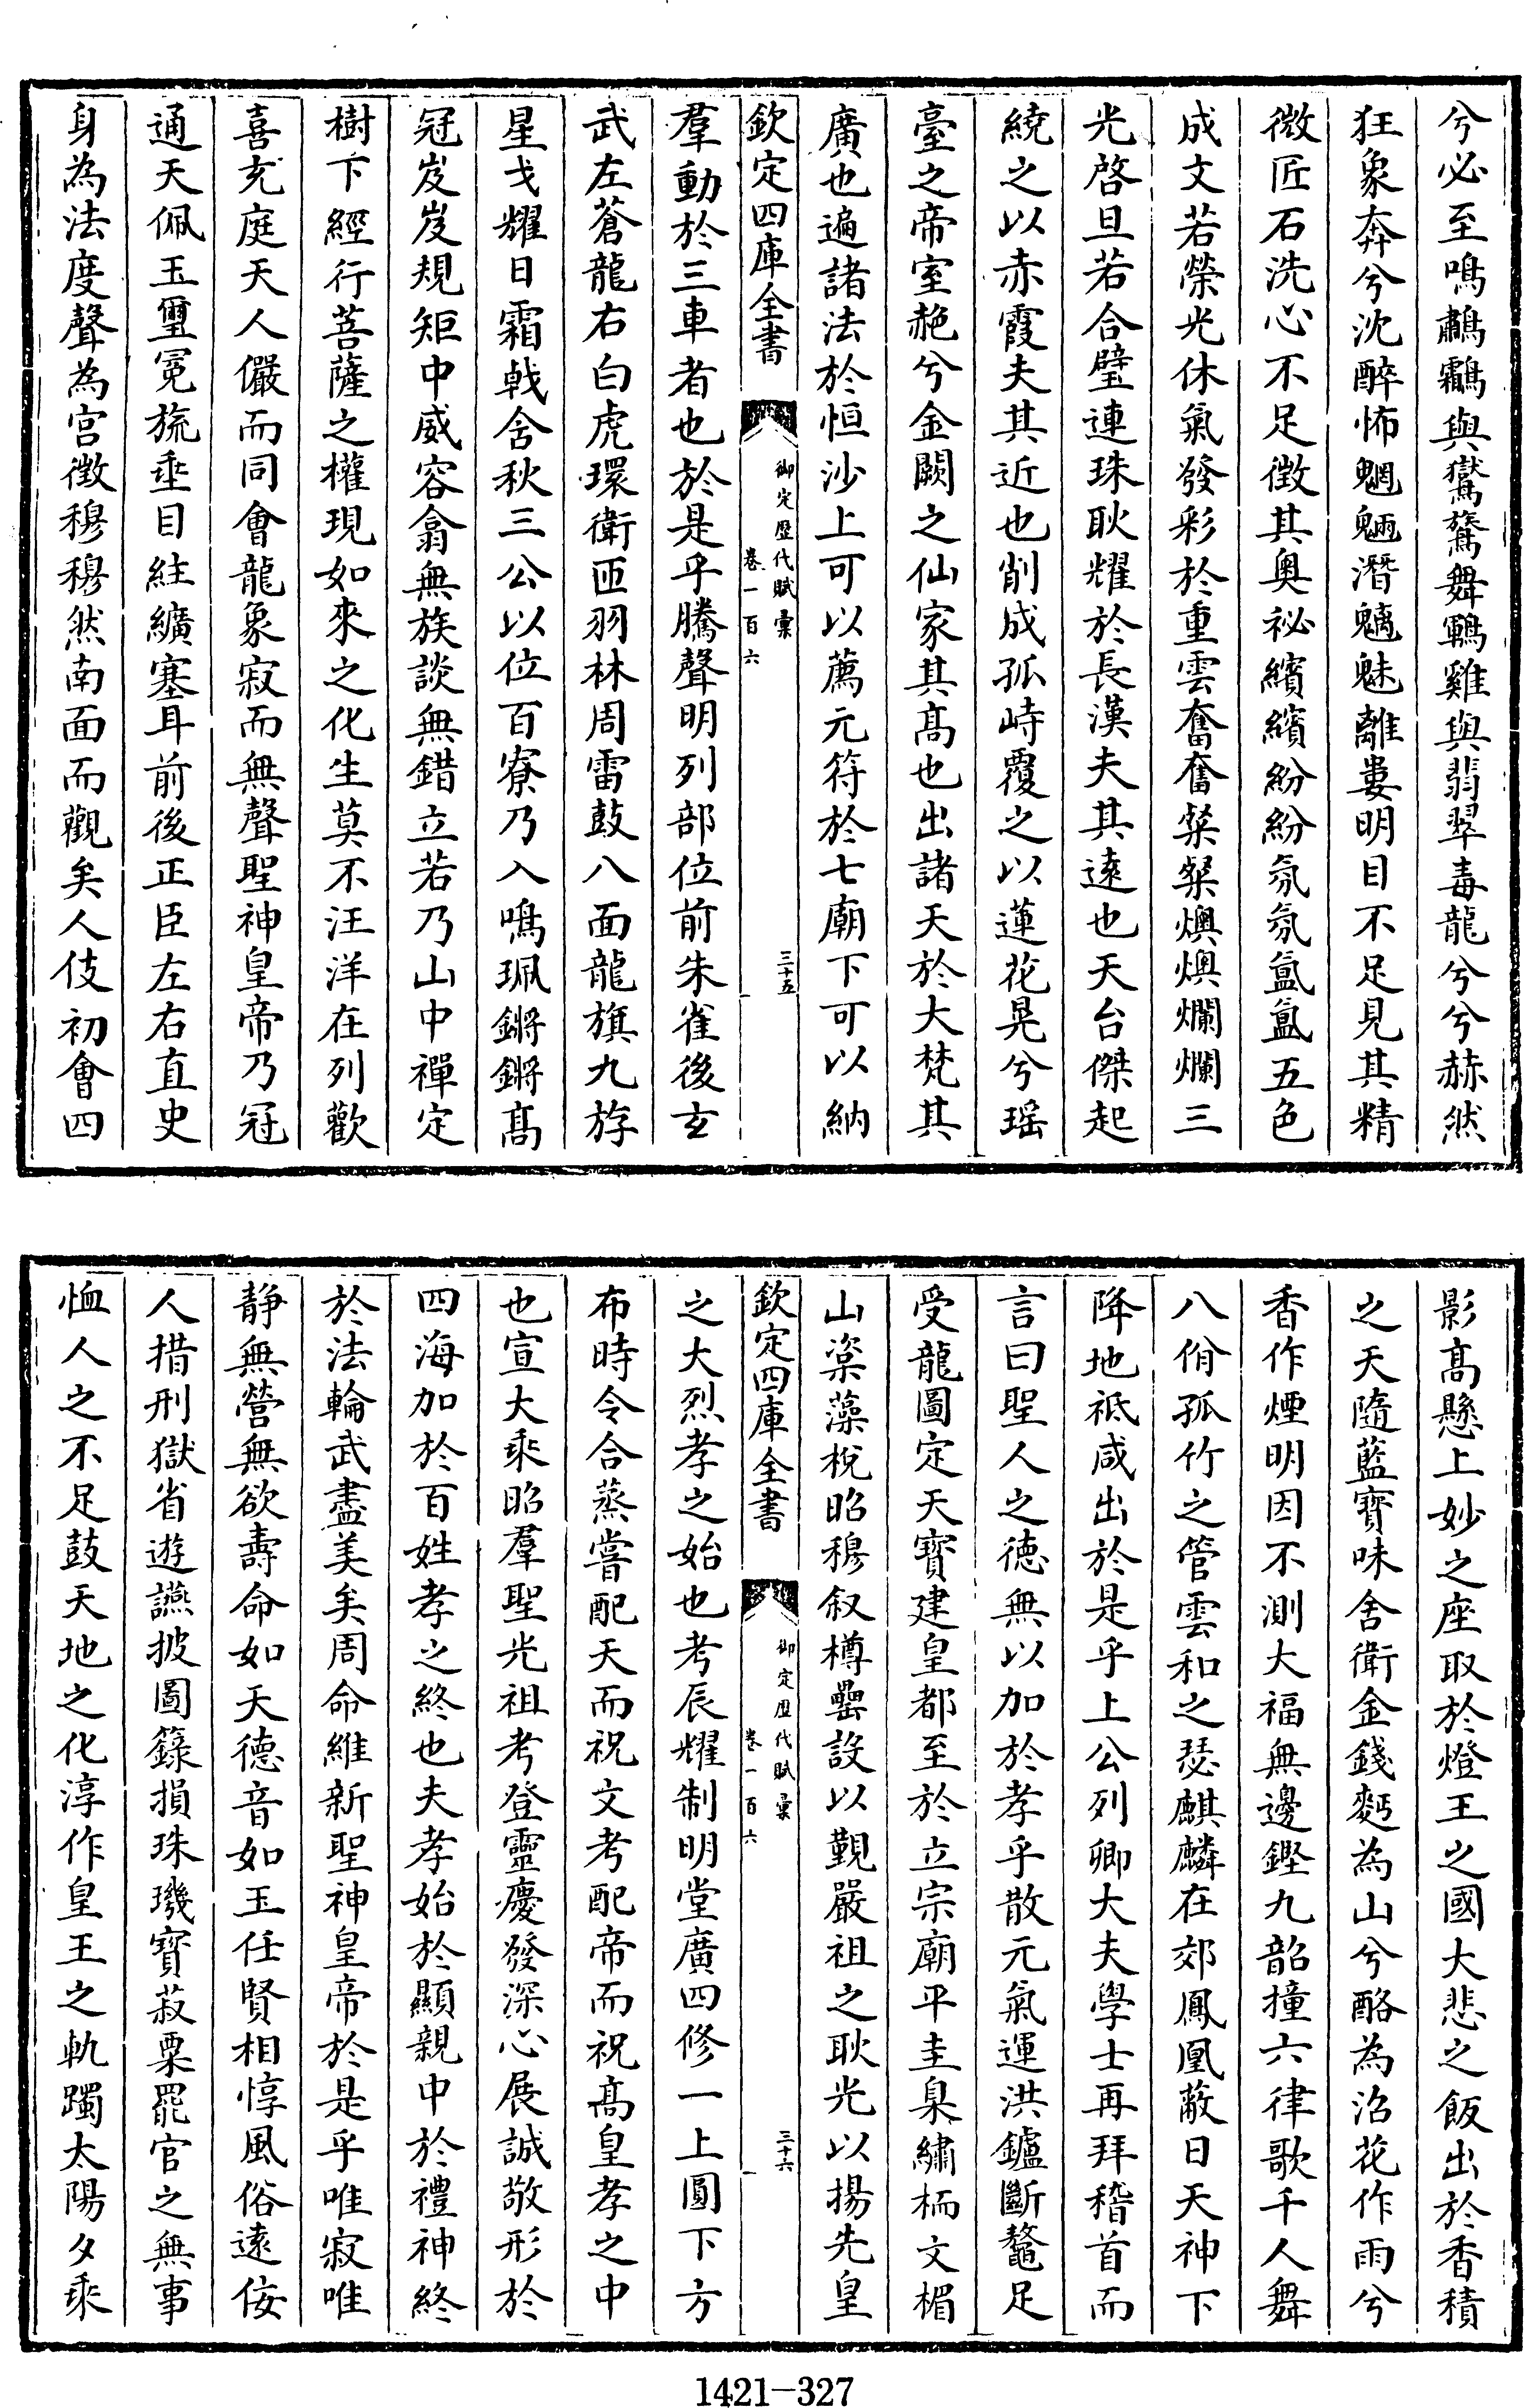 兮必至鳴鷫鸘與鸑鷟舞鶤雞與翡翠毒龍兮兮赫然
狂象奔兮沈醉怖魍魎潛魑魅離婁明目不足見其精
微匠石洗心不足徴其奧祕繽繽紛紛氛氛氳氳五色
成文若榮光休氣發彩於重雲奮奮粲粲燠燠爛爛三
光啓旦若合璧連珠耿耀於長漢夫其遠也天台傑起
繞之以赤霞夫其近也削成孤峙覆之以蓮花晃兮瑶
臺之帝室赩兮金闕之仙家其髙也出諸天於大梵其
廣也遍諸法於恒沙上可以薦元符於七廟下可以納
欽定四庫全書
御定歴代賦彚
卷一百六
三十五
羣動於三車者也於是乎騰聲明列部位前朱雀後玄
武左蒼龍右白虎環衛匝羽林周雷鼓八面龍旗九斿
星戈耀日霜戟含秋三公以位百寮乃入鳴珮鏘鏘髙
冠岌岌規矩中威容翕無族談無錯立若乃山中禪定
樹下經行菩薩之權現如來之化生莫不汪洋在列歡
喜充庭天人儼而同會龍象寂而無聲聖神皇帝乃冠
通天佩玉璽冕旒垂目紸纊塞耳前後正臣左右直史
身為法度聲為宫徴穆穆然南面而觀矣人伎初會四
影髙懸上妙之座取於燈王之國大悲之飯出於香積
之天隨藍寶味舍衛金錢麫為山兮酪為沼花作雨兮
香作煙明因不測大福無邊鏗九韶撞六律歌千人舞
八佾孤竹之管雲和之瑟麒麟在郊鳳凰蔽日天神下
降地祗咸出於是乎上公列卿大夫學士再拜稽首而
言曰聖人之德無以加於孝乎散元氣運洪鑪斷鼇足
受龍圖定天寶建皇都至於立宗廟平圭臬繡栭文楣
山楶藻梲昭穆叙樽罍設以覲嚴祖之耿光以揚先皇
欽定四庫全書
御定歴代賦彚
卷一百六
三十六
之大烈孝之始也考辰耀制明堂廣四修一上圓下方
布時令合蒸嘗配天而祝文考配帝而祝髙皇孝之中
也宣大乘昭羣聖光祖考登靈慶發深心展誠敬形於
四海加於百姓孝之終也夫孝始於顯親中於禮神終
於法輪武盡美矣周命維新聖神皇帝於是乎唯寂唯
静無營無欲壽命如天德音如玉任賢相惇風俗逺佞
人措刑獄省遊讌披圖籙損珠璣寶菽粟罷官之無事
恤人之不足鼓天地之化淳作皇王之軌躅太陽夕乘
1421—327